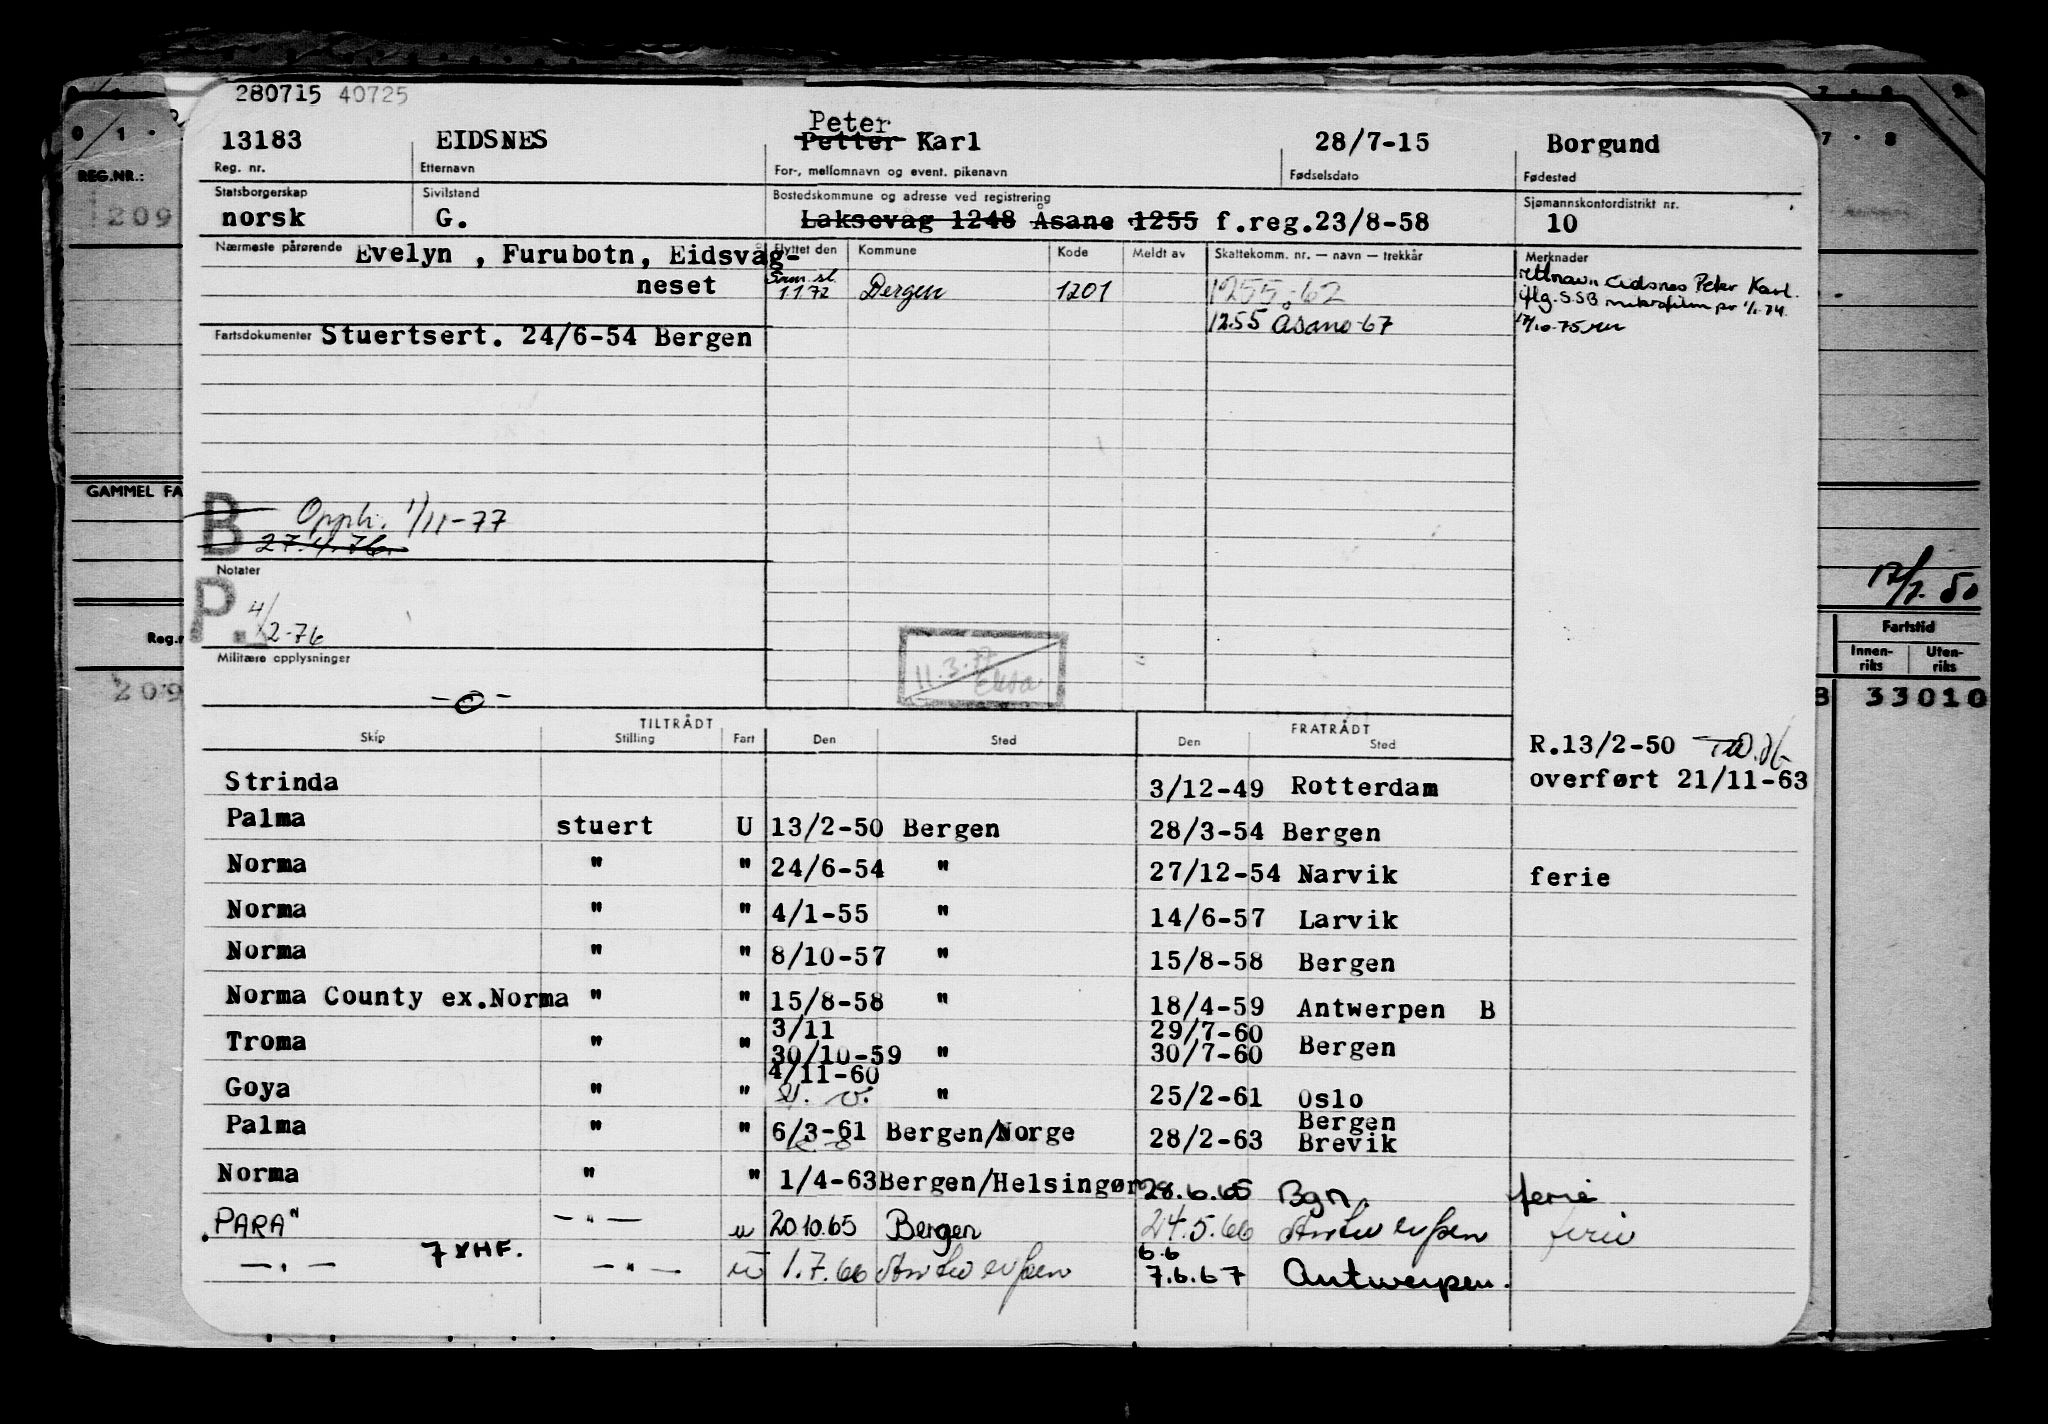 280715 40725
13183 EIDSNES Peter Petter Karl 28/7-15 Borgund
Reg. nr. Etternavn For-, mellomnavn og event. pikenavn Fødselsdato Fødested
Statsborgerskap Sivilstand Bostedskommune og adresse ved registrering Sjømannskontordistrikt nr.
norsk G. Laksevåg 1248 Åsane 1255 f.reg.23/8-58 10
Nærmeste pårørende Evelyn , Furubotn, Eidsvåg- Flyttet den Kommune Kode Meldt av Skattekomm. nr. — navn — trekkår Merknader
neset Sam.sl. 1 1 72 Bergen 1201 1255-62 rettnavn Eidsnes Peter Karl.
iflg. S.S.B mikrofilm pr 1/1-74.
1255 Åsane-67 17/10-75
Fartsdokumenter Stuertsert. 24/6-54 Bergen
B Opph. 1/11-77
27.4.76
Notater
P. 4/2-76
Militære opplysninger
-0-
11.3.77
TILTRÅDT FRATRÅDT
Skip Stilling Fart Den Sted Den Sted
R.13/2-50
overført 21/11-63
Strinda 3/12-49 Rotterdam
Palma stuert U 13/2-50 Bergen 28/3-54 Bergen
Norma " " 24/6-54 " 27/12-54 Narvik ferie
Norma " " 4/1-55 " 14/6-57 Larvik
Norma " " 8/10-57 " 15/8-58 Bergen
Norma County ex.Norma " " 15/8-58 " 18/4-59 Antwerpen B
3/11 29/7-60
Troma " " 30/10-59 " 30/7-60 Bergen
4/11-60
Goya " " " 25/2-61 Oslo
Bergen
Palma " " 6/3-61 Bergen/Norge 28/2-63 Brevik
Norma " " 1/4-63 Bergen/Helsingør 28.6.65 Bgn. ferie
"PARA" —"— u 20.10.65 Bergen 24.5.66 Antwerpen ferie
6.6
—"— 7XHF. —"— u 1.7.66 Antwerpen 7.6.67 Antwerpen.
0 1
REG.NR.:
209
GAMMEL FA
Reg.n
209
7 8 9
7 · 8
17/7.50
Fartstid
Innen-riks Uten-riks
8 33010